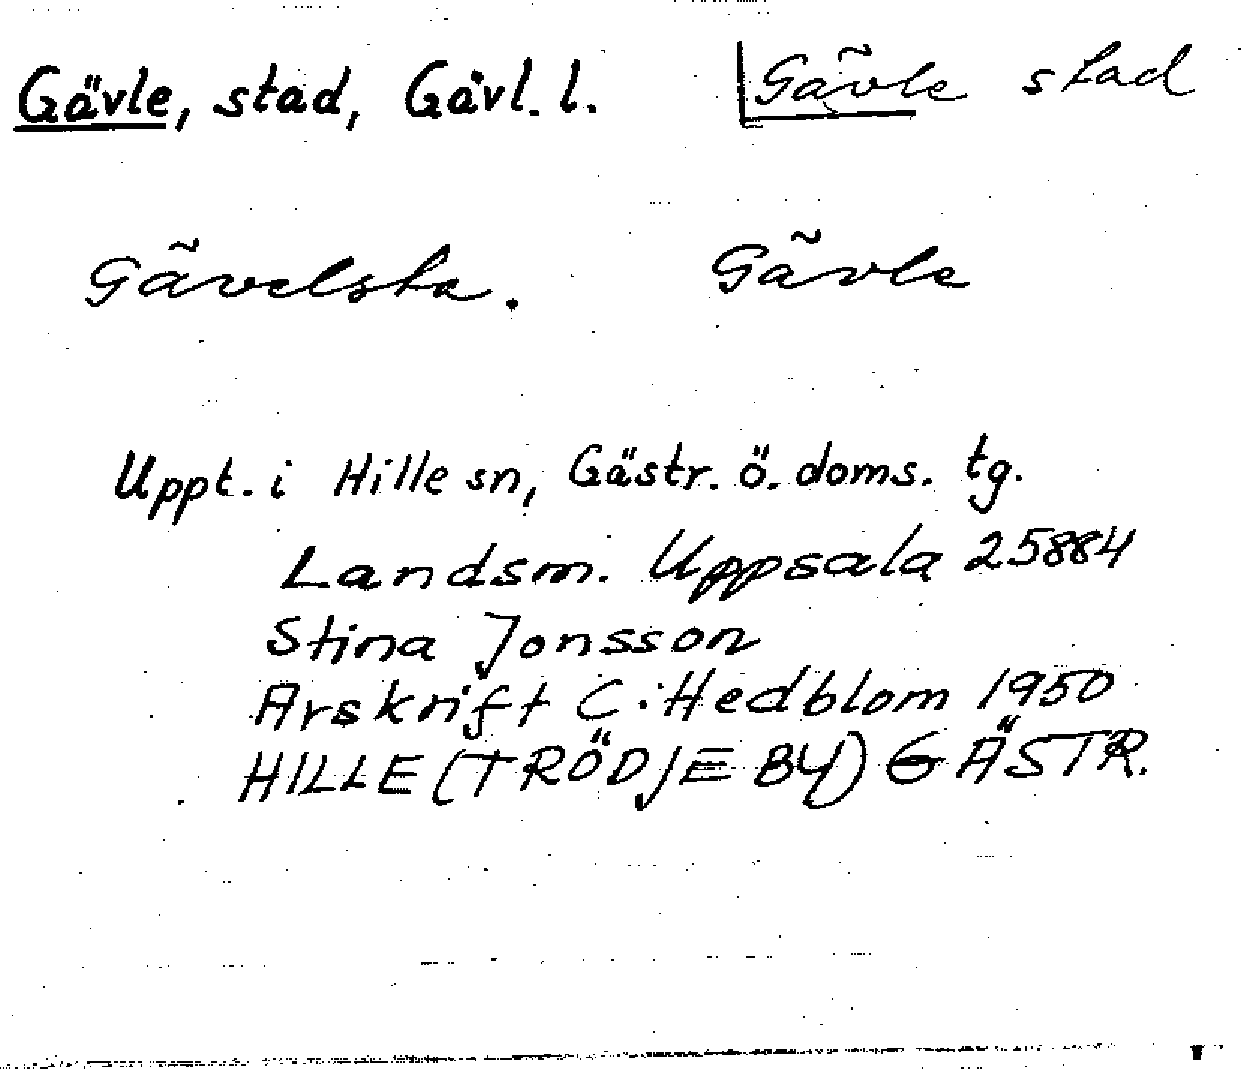 Gävle, stad, Gävl. l. Gãvle stad
Gãvelsta. Gãvle
Uppt. i Hille sn, Gästr. ö. doms. tg.
Landsm. Uppsala 25884
Stina Jonsson
Arskrift C. Hedblom 1950
HILLE (TRÖDJE BY) GÄSTR.